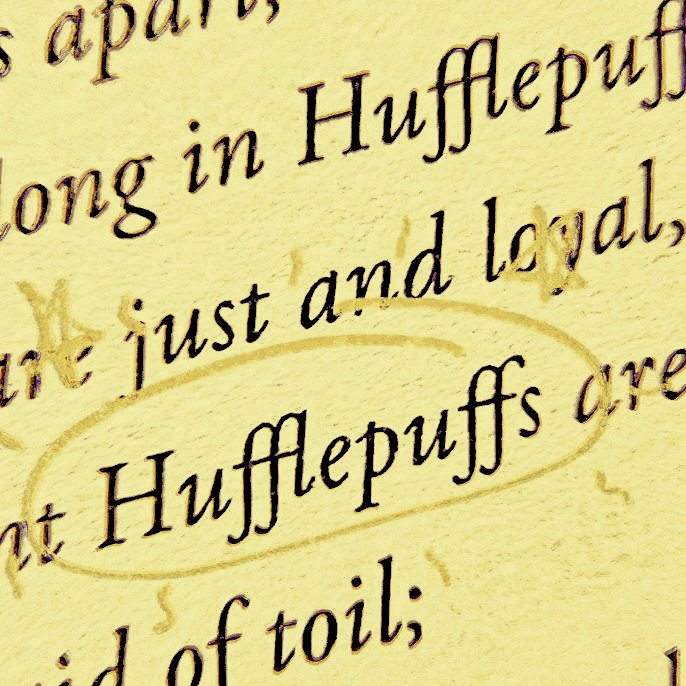 s apart,
long in Hufflepuff
are just and loyal,
nt Hufflepuffs are
id of toil;